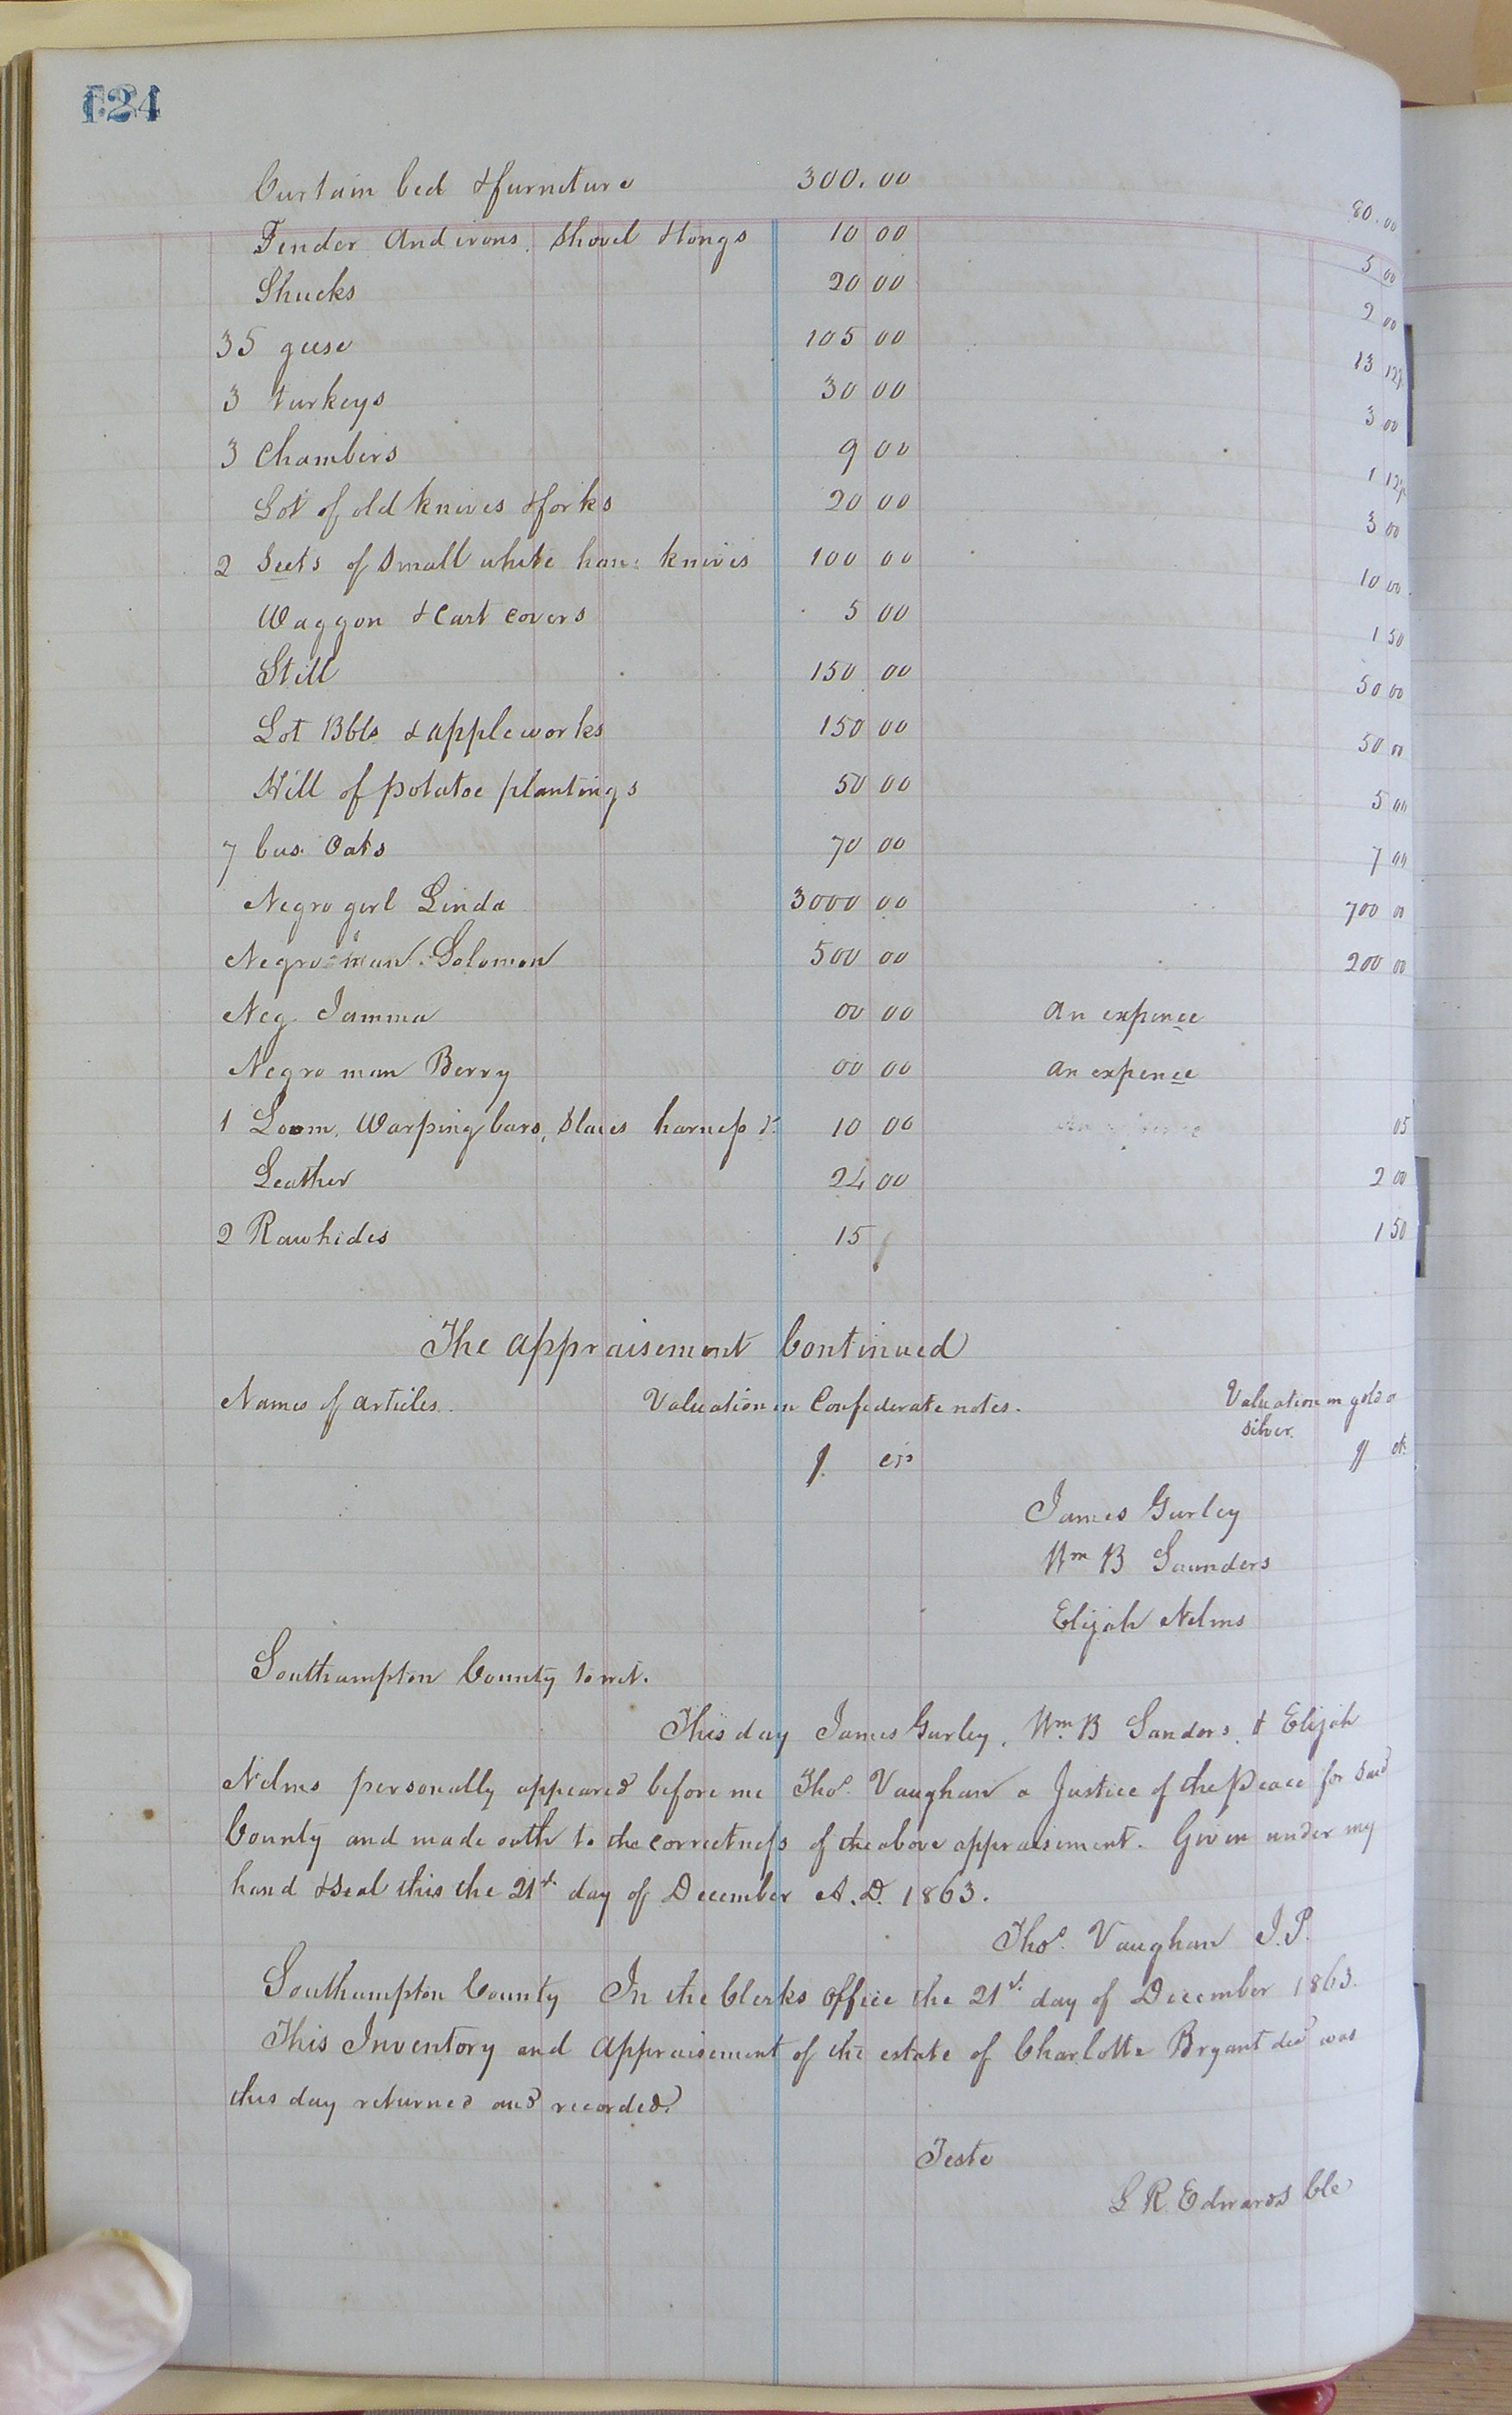 124
Curtain bed & furniture 300.00 80.00
Fender Andirons, Shovel & tongs 10 00 5 00
Shucks 20 00 2 00
35 geese 105 00 13 12½
3 turkeys 30 00 3 00
3 Chambers 9 00 1 12½
Lot of old knives & forks 20 00 3 00
2 Seets of Small white han: knives 100 00 10 00
Waggon & Cart covers 5 00 1 50
Still 150 00 50 00
Lot Bbls & apple works 150 00 50 00
Hill of potatoe plantings 50 00 5 00
7 bus. Oats 70 00 7 00
Negro girl Linda 3000 00 700 00
Negro man Solomon 500 00 200 00
Neg. Jamma 00 00 an expence
Negro man Berry 00 00 an expence
1 Loom, Warping bars, Slaies harness &c 10 00 05
Leather 24 00 2 00
2 Rawhides 15 1 50
The appraisement Continued
Names of articles. Valuation in Confederate notes. Valuation in gold or
silver.
$ cts $ cts
James Gurley
Wm B Saunders
Elijah Nelms
Southampton County to wit.
This day James Gurley, Wm. B Sanders, & Elijah
Nelms personally appeared before me Thos. Vaughan a Justice of the Peace for said
County and made oath to the correctness of the above appraisement. Given under my
hand & seal this the 21st day of December A.D. 1863.
Thos. Vaughan J.P.
Southampton County In the Clerks Office the 21st day of December 1863.
This Inventory and Appraisement of the estate of Charlotte Bryant decd was
this day returned and recorded.
Teste
L R. Edwards Clk